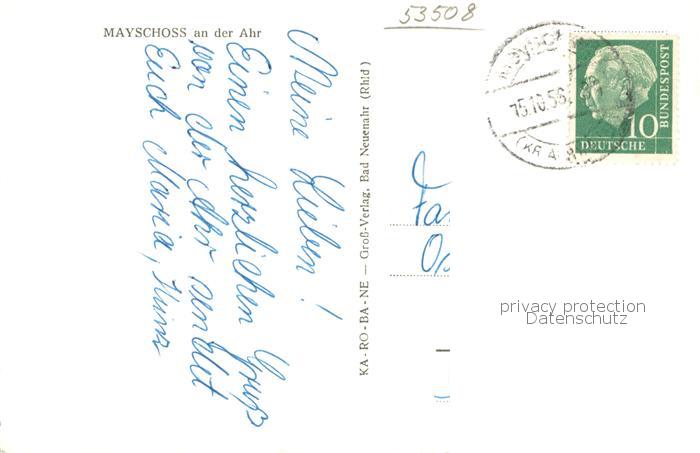 53508
MAYSCHOSS an der Ahr
Meine Lieben!
Einen herzlichen Gruß
von der Ahr sendet
Euch Maria, Heinz
KA-RO-BA-NE — Groß-Verlag, Bad Neuenahr (Rhld)
15.10.56
(KR A
10
DEUTSCHE
BUNDESPOST
Fa
privacy protection
Datenschutz